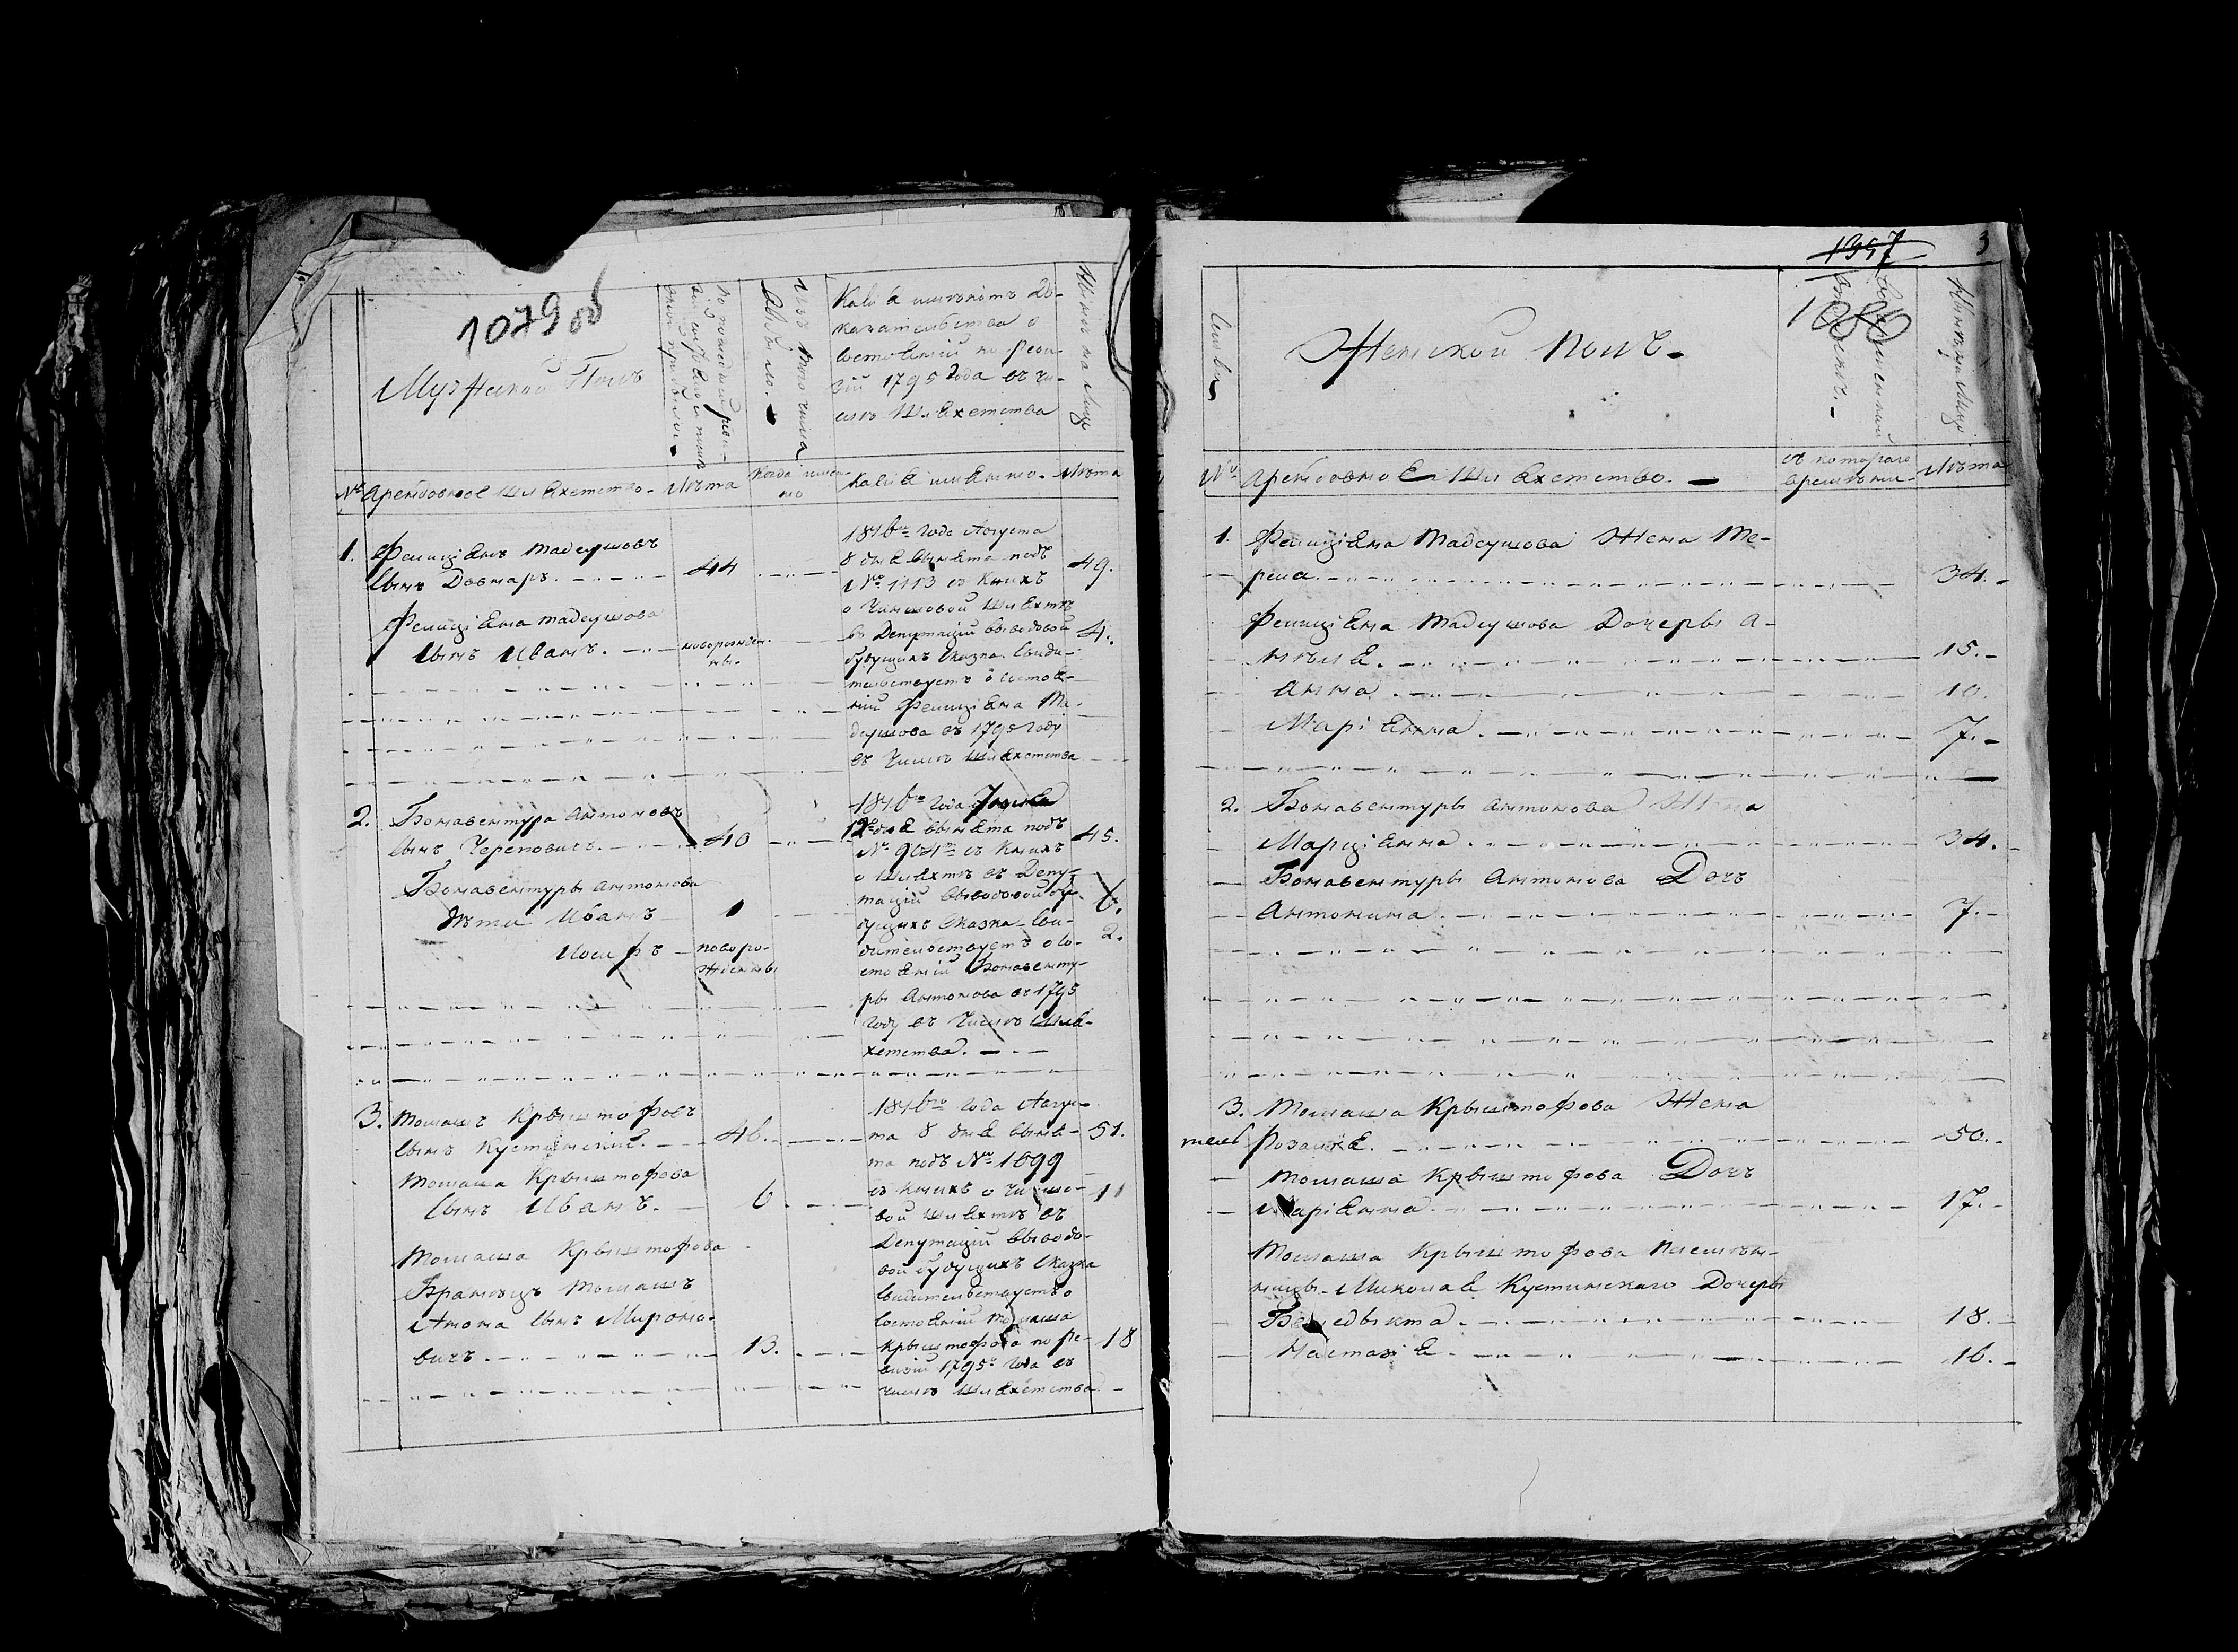 1079 об
Мужеской Полъ
по последней реви-
Изъ того числа
выбыло.
Какія имеютъ до-
казательства о
состояніи по реви-
зіи 1795 года въ чи-
сле шляхетства
Ныне на лицо
№ Арендовное шляхетство
Лета
Когда имен-
но
Какія именно.
Лета
1. Фелиціянъ Тадеушовъ
сынъ Довнаръ.
44
1816го года Августа
8 дня вынята подъ
№ 1113 съ книхъ
о чиншовой шляхте
въ Депутаціи выводовой
будущихъ сказка свиде-
тельствуетъ о состоя-
ніи Фелиціяна Та-
деушова въ 1795 году
въ числе шляхетства
49.
Фелиціяна Тадеушова
сынъ Иванъ.
новорожден-
ны.
4.
2. Бонавентура Антоновъ
сынъ Череповичъ.
40
1816го года
12 дня вынята подъ
№ 904 съ книхъ
о шляхте въ Депу-
таціи выводовой бу-
дущихъ сказка сви-
детельствуетъ о со-
стояніи Бонавенту-
ры Антонова въ 1795
году въ числе шля-
хетства.
45.
Бонавентуры Антонова
дети Иванъ
1
6.
Иосифъ
новоро-
жденны
2.
3. Томашъ Крыштофовъ
сынъ Кустинский.
46.
1816го года Авгус-
та 8 дня выня-
та подъ № 1099
съ книхъ о чиншо-
вой шляхте въ
Депутаціи выводо-
вой будущихъ сказка
свидетельствуетъ о
состояніи Томаша
Крыштофова по ре-
визіи 1795го года въ
числе шляхетства
51.
Томаша Крыштофова
сынъ Иванъ.
6.
11
Томаша Крыштофова
Братнецъ Томашъ
Антона сынъ Мироно-
вичъ.
13.
18
1357
3
1080
Женской Полъ
Ныне на лицо
№ Арендовное шляхетство.
съ котораго
времени
Лета
1. Фелиціяна Тадеушова Жена Те-
реса.
34.
Фелиціяна Тадеушова Дочеры А-
15.
Анна.
10.
Маріянна.
7.
2. Бонавентуры Антонова Жена
Марціянна.
34.
Бонавентуры Антонова Дочъ
Антонина.
7.
3. Томаша Крыштофова Жена
Розалія.
50.
Томаша Крыштофова Дочъ
Маріянна.
17.
Томаша Крыштофова племен-
ницы Миколая Кустинскаго Дочеры
Бенедыкта.
18.
Настазія.
16.